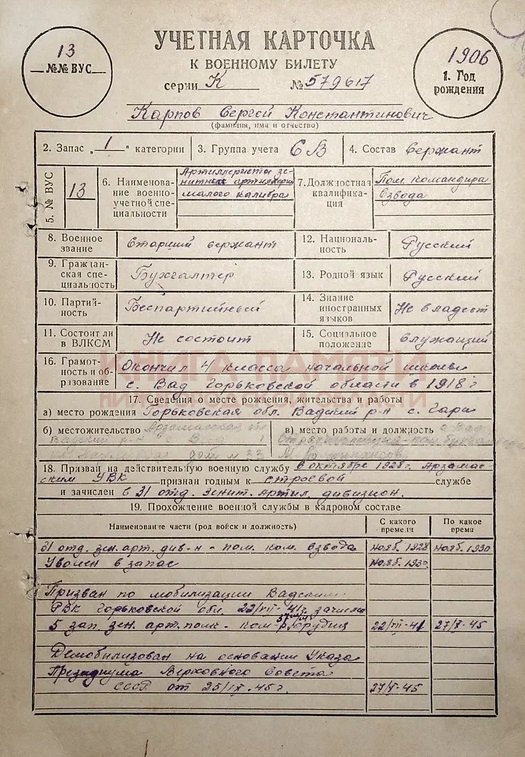 13
№№ ВУС
УЧЕТНАЯ КАРТОЧКА
К ВОЕННОМУ БИЛЕТУ
серии К №579617
1906
1. Год
рождения
Карпов Сергей Константинович
(фамилия, имя и отчество)
2. Запас „1“ категории
3. Группа учета СВ
4. Состав Сержант
5. № ВУС 13
6. Наименование военно-учетной специальности
Артиллеристы зенитной артиллерии малого калибра
7. Должностная квалификация
Пом. командира взвода
8. Военное звание Старший сержант
12. Национальность Русский
9. Гражданская специальность Бухгалтер
13. Родной язык Русский
10. Партийность Беспартийный
14. Знание иностранных языков Не владеет
11. Состоит ли в ВЛКСМ Не состоит
15. Социальное положение Служащий
16. Грамотность и образование Окончил 4 класса начальной школы
с. Вад Горьковской области в 1918 г
КНИГА ПАМЯТИ
17. Сведения о месте рождения, жительства и работы
а) место рождения Горьковская обл. Вадский р-н с.
б) местожительство Арзамасская обл
в) место работы и должность
Вадский р-н
дом № 33
18. Призван на действительную военную службу в октябре 1928 г. Арзамас-
ским УВК признан годным к строевой службе
и зачислен в 31 отд. зенит. артил. дивизион.
19. Прохождение военной службы в кадровом составе
Наименование части (род войск и должность)
С какого времени
По какое время
31 отд. зен. арт. див-н - пом. ком. взвода нояб. 1928 нояб. 1930
Уволен в запас нояб. 1930
Призван по мобилизации Вадским
РВК Горьковской обл. зачислен
5 зап. зен. арт. полк - ком.
Демобилизован на основании Указа
Президиума Верховного Совета
СССР от 25/IX-45 г.